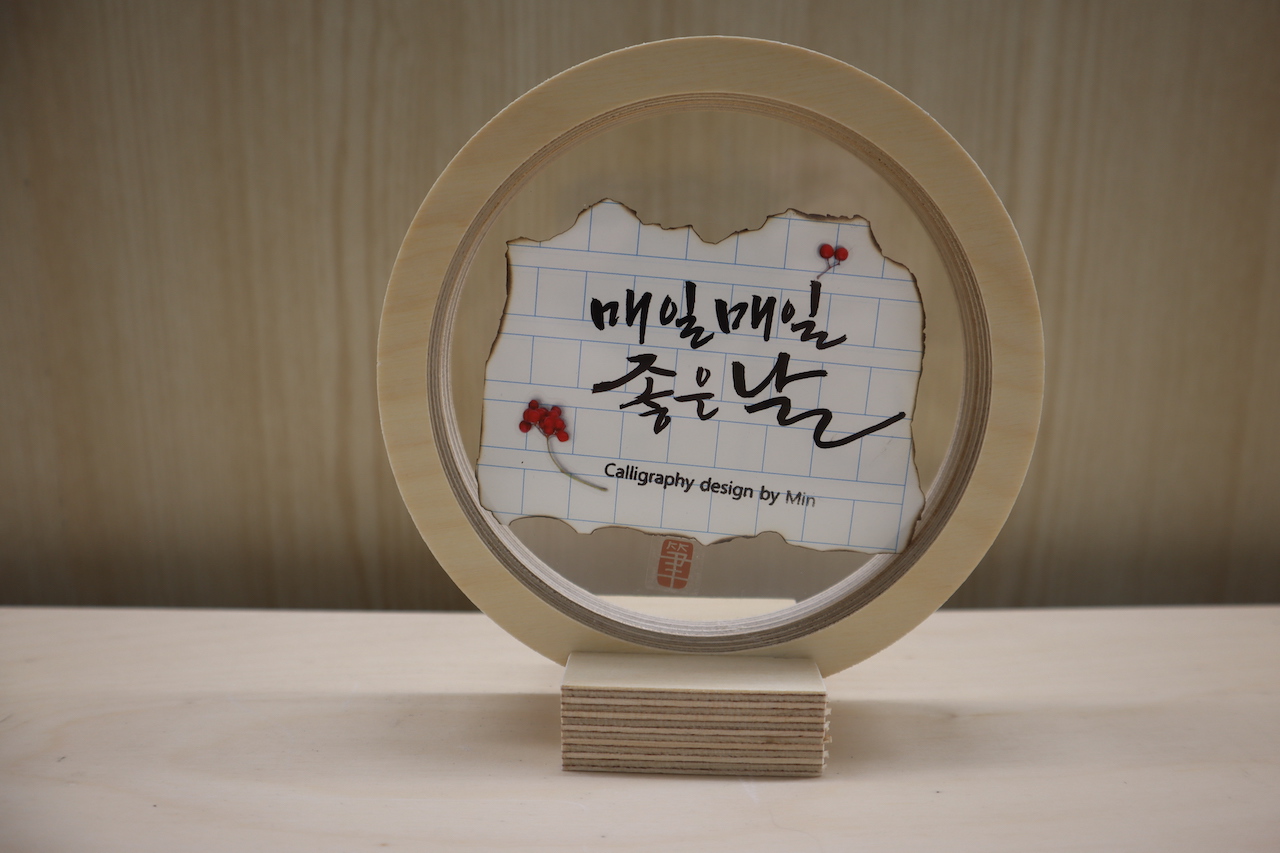 매일매일
좋은날
Calligraphy design by Min
筆